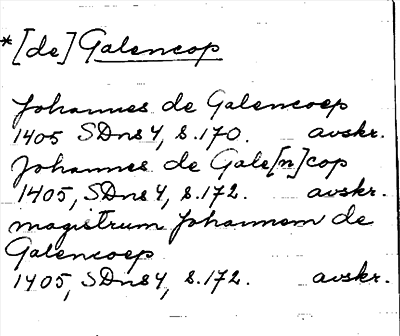 *[de] Galencop
Johannes de Galencoep
1405 SDns 1, s. 170. avskr.
Johannes de Gale[n]cop
1405, SDns 1, s. 172. avskr.
magistrum Johannem de
Galencoep
1405, SDns 1, s. 172. avskr.